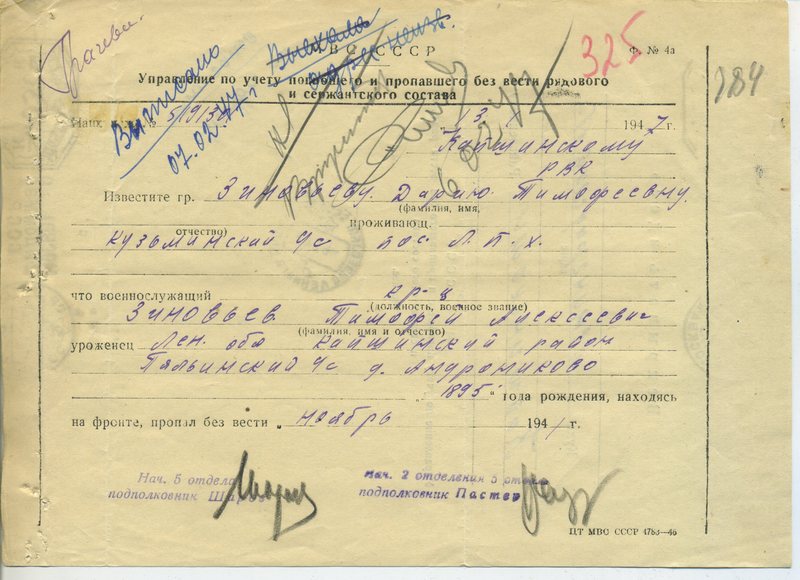 Выписано
07.02.47 г
Выехала
325
184
МВС СССР
Ф. № 4а
Управление по учету погибшего и пропавшего без вести рядового
и сержантского состава
№ 5/9/30
3 1947 г.
Кайшинскому
РВК
Известите гр. Зиновьеву Дарию Тимофеевну
(фамилия, имя,
отчество)
проживающ.
Кузьминский с/с пос. Л.П.Х.
что военнослужащий кр-ц
(должность, военное звание)
Зиновьев Тимофей Алексеевич
(фамилия, имя и отчество)
уроженец Лен. обл Кайшинский район
Пяльинский с/с д. Андрониково
„1895" года рождения, находясь
на фронте, пропал без вести „ ноябрь 1941 г.
Нач. 5 отдела
подполковник
Нач. 2 отделения 5 отдела
подполковник Пастер
ЦТ МВС СССР 4783—46